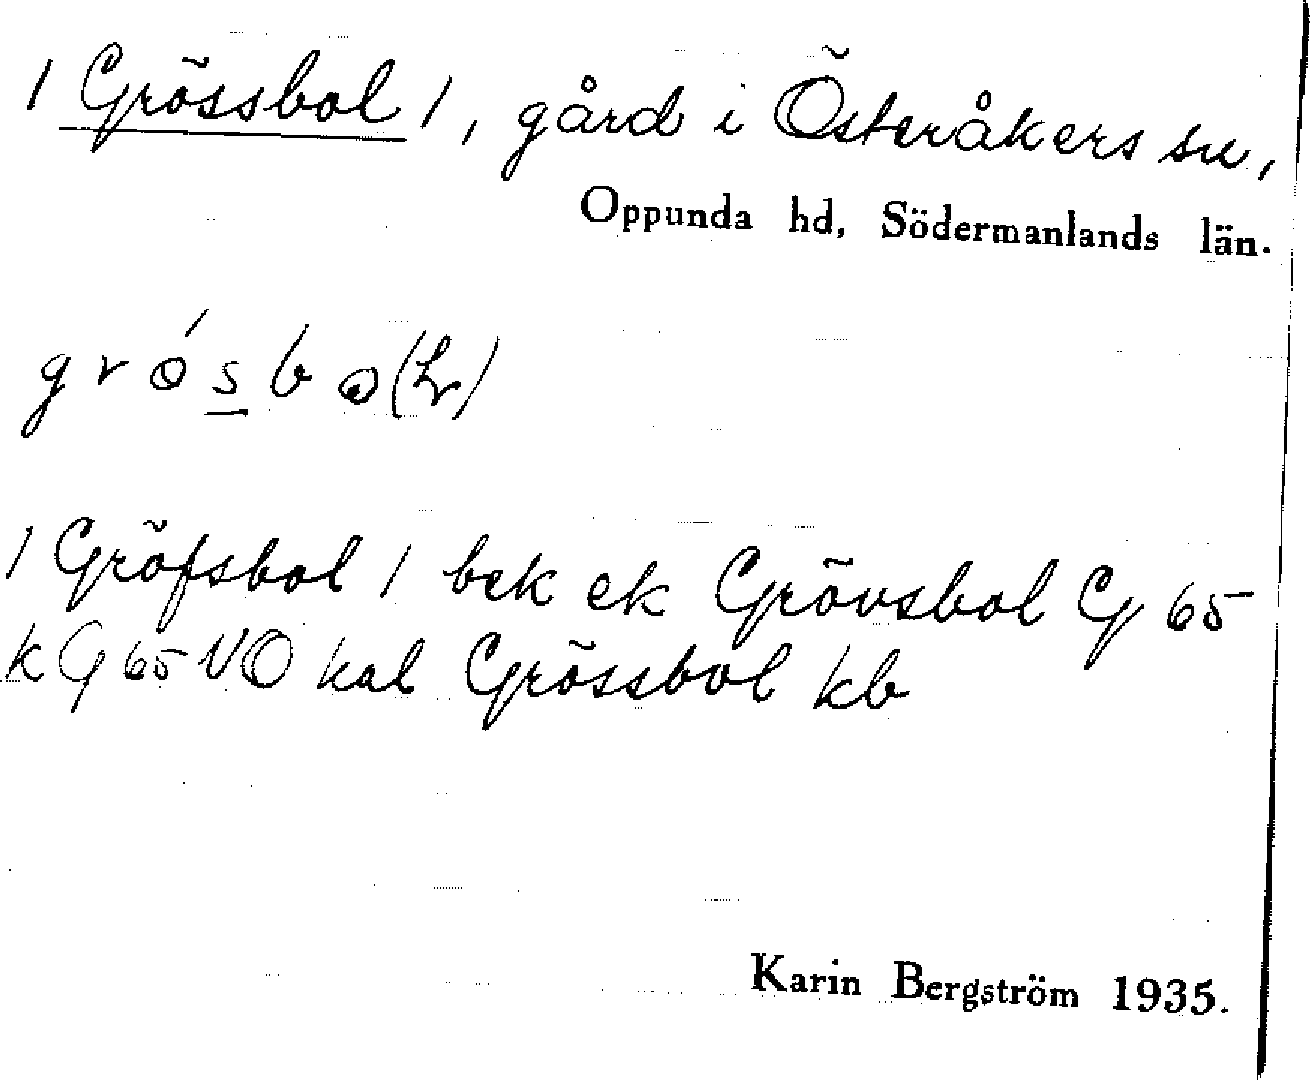 / Grössbol /, gård i Österåkers sn,
Oppunda hd, Södermanlands län.
/ Gröfsbol / bek ek Grövsbol G 65
k G 65 NO kal Grössbol kb
Karin Bergström 1935.